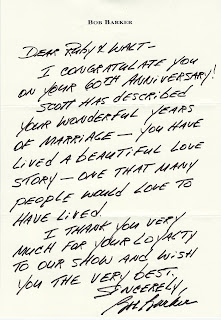 BOB BARKER
DEAR RUBY & WALT-
I CONGRATULATE YOU
ON YOUR 60TH ANNIVERSARY!
SCOTT HAS DESCRIBED
YOUR WONDERFUL YEARS
OF MARRIAGE - YOU HAVE
LIVED A BEAUTIFUL LOVE
STORY - ONE THAT MANY
PEOPLE WOULD LOVE TO
HAVE LIVED.
I THANK YOU VERY
MUCH FOR YOUR LOYALTY
TO OUR SHOW AND WISH
YOU THE VERY BEST.
SINCERELY,
Bob Barker